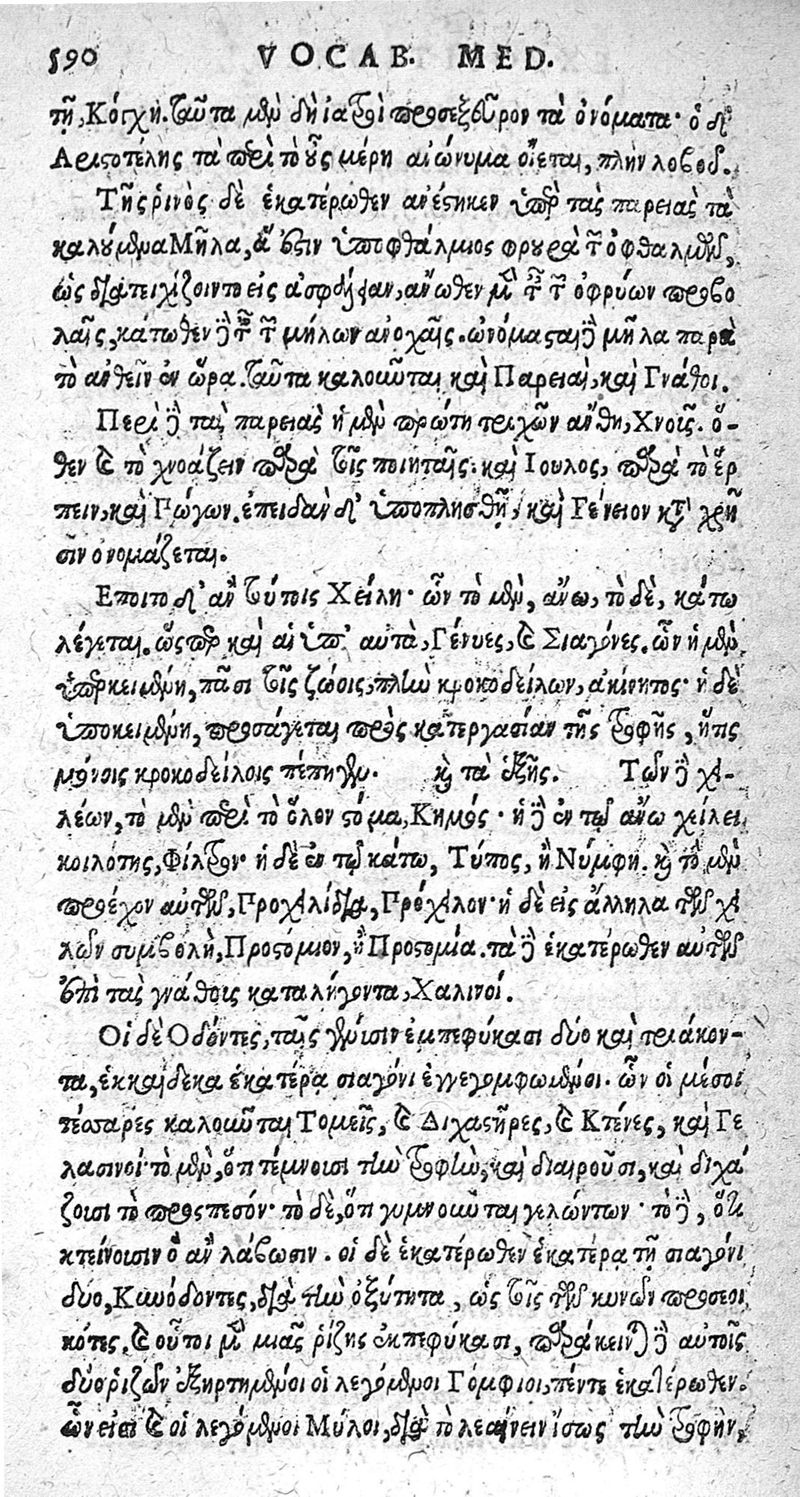 590 VOCAB. MED.
τῇ, Κόγχη. ταῦτα μὲν δὴ ἰατροὶ προσεξεῦρον τὰ ὀνόματα· ὁ δ'
Αριστοτέλης τὰ περὶ τὸ οὖς μέρη ἀνώνυμα οἴεται, πλὴν λοβοῦ.
Τῆς ῥινὸς δὲ ἑκατέρωθεν ἀνέστηκεν ὑπὲρ τὰς παρειὰς τὰ
καλούμενα Μῆλα, ἅ ἐστιν ὑποφθάλμιος φρουρὰ τῶν ὀφθαλμῶν,
ὡς διατειχίζοιντο εἰς ἀσφάλειαν, ἄνωθεν μὲν ταῖς τῶν ὀφρύων προβο
λαῖς, κάτωθεν δὲ ταῖς τῶν μήλων ἀνοχαῖς. ὠνόμασται δὲ μῆλα παρὰ
τὸ ἀνθεῖν ἐν ὥρα. ταῦτα καλοῦνται καὶ Παρειαὶ, καὶ Γνάθοι.
Περὶ δὲ τὰς παρειὰς ἡ μὲν πρώτη τριχῶν ἄνθη, Χνοῦς. ὅ-
θεν καὶ τὸ χνοάζειν παρὰ τοῖς ποιηταῖς· καὶ Ιουλος, παρὰ τὸ ἕρ
πειν, καὶ Πώγων. ἐπειδὰν δ' ὑποπλησθῇ, καὶ Γένειον κατὰ χρῆ
σιν ὀνομάζεται.
Εποιτο δ' ἂν τούτοις Χείλη· ὧν τὸ μὲν, ἄνω, τὸ δὲ, κάτω
λέγεται. ὥσπερ καὶ αἱ ὑπ' αὐτὰ, Γένυες, καὶ Σιαγόνες. ὧν ἡ μὲν
ὑπερκειμένη, πᾶσι τοῖς ζώοις, πλὴν κροκοδείλων, ἀκίνητος· ἡ δὲ
ὑποκειμένη, προσάγεται πρὸς κατεργασίαν τῆς τροφῆς, ἥτις
μόνοις κροκοδείλοις πέπηγεν. καὶ τὰ ἑξῆς. Τῶν δὲ χει-
λέων, τὸ μὲν περὶ τὸ ὅλον στόμα, Κημός· ἡ δὲ ἐν τῷ ἄνω χείλει
κοιλότης, Φίλτρον· ἡ δὲ ἐν τῷ κάτω, Τύπος, ἢ Νύμφη. καὶ τὸ μὲν
προέχον αὐτῶν, Προχειλίδια, Πρόχειλον· ἡ δὲ εἰς ἄλληλα τῶν χει
λῶν συμβολὴ, Προστόμιον, ἢ Προστομία. τὰ δὲ ἑκατέρωθεν αὐτῶν
ἐπὶ τὰς γνάθους καταλήγοντα, Χαλινοί.
Οἱ δὲ Οδόντες, ταῖς γένυσιν ἐμπεφύκασι δύο καὶ τριάκον-
τα, ἑκκαίδεκα ἑκατέρα σιαγόνι ἐγγεγομφωμένοι. ὧν οἱ μέσοι
τέσσαρες καλοῦνται Τομεῖς, καὶ Διχαστῆρες, καὶ Κτένες, καὶ Γε
λασινοί· τὸ μὲν, ὅτι τέμνουσι τὴν τροφὴν, καὶ διαιροῦσι, καὶ διχά
ζουσι τὸ προσπεσόν· τὸ δὲ, ὅτι γυμνοῦνται γελώντων· τὸ δὲ, ὅτι
κτείνουσιν ὃ ἂν λάβωσιν. οἱ δὲ ἑκατέρωθεν ἑκατέρα τῇ σιαγόνι
δύο, Κυνόδοντες, διὰ τὴν ὀξύτητα, ὡς τοῖς τῶν κυνῶν προσεοι
κότες. καὶ οὗτοι μὲν μιᾶς ῥίζης ἐκπεφύκασι, παράκεινται δὲ αὐτοῖς
δύο ῥιζῶν ἐξηρτημένοι οἱ λεγόμενοι Γόμφιοι, πέντε ἑκατέρωθεν.
ὧν εἰσι καὶ οἱ λεγόμενοι Μύλοι, διὰ τὸ λεαίνειν ἴσως τὴν τροφὴν,